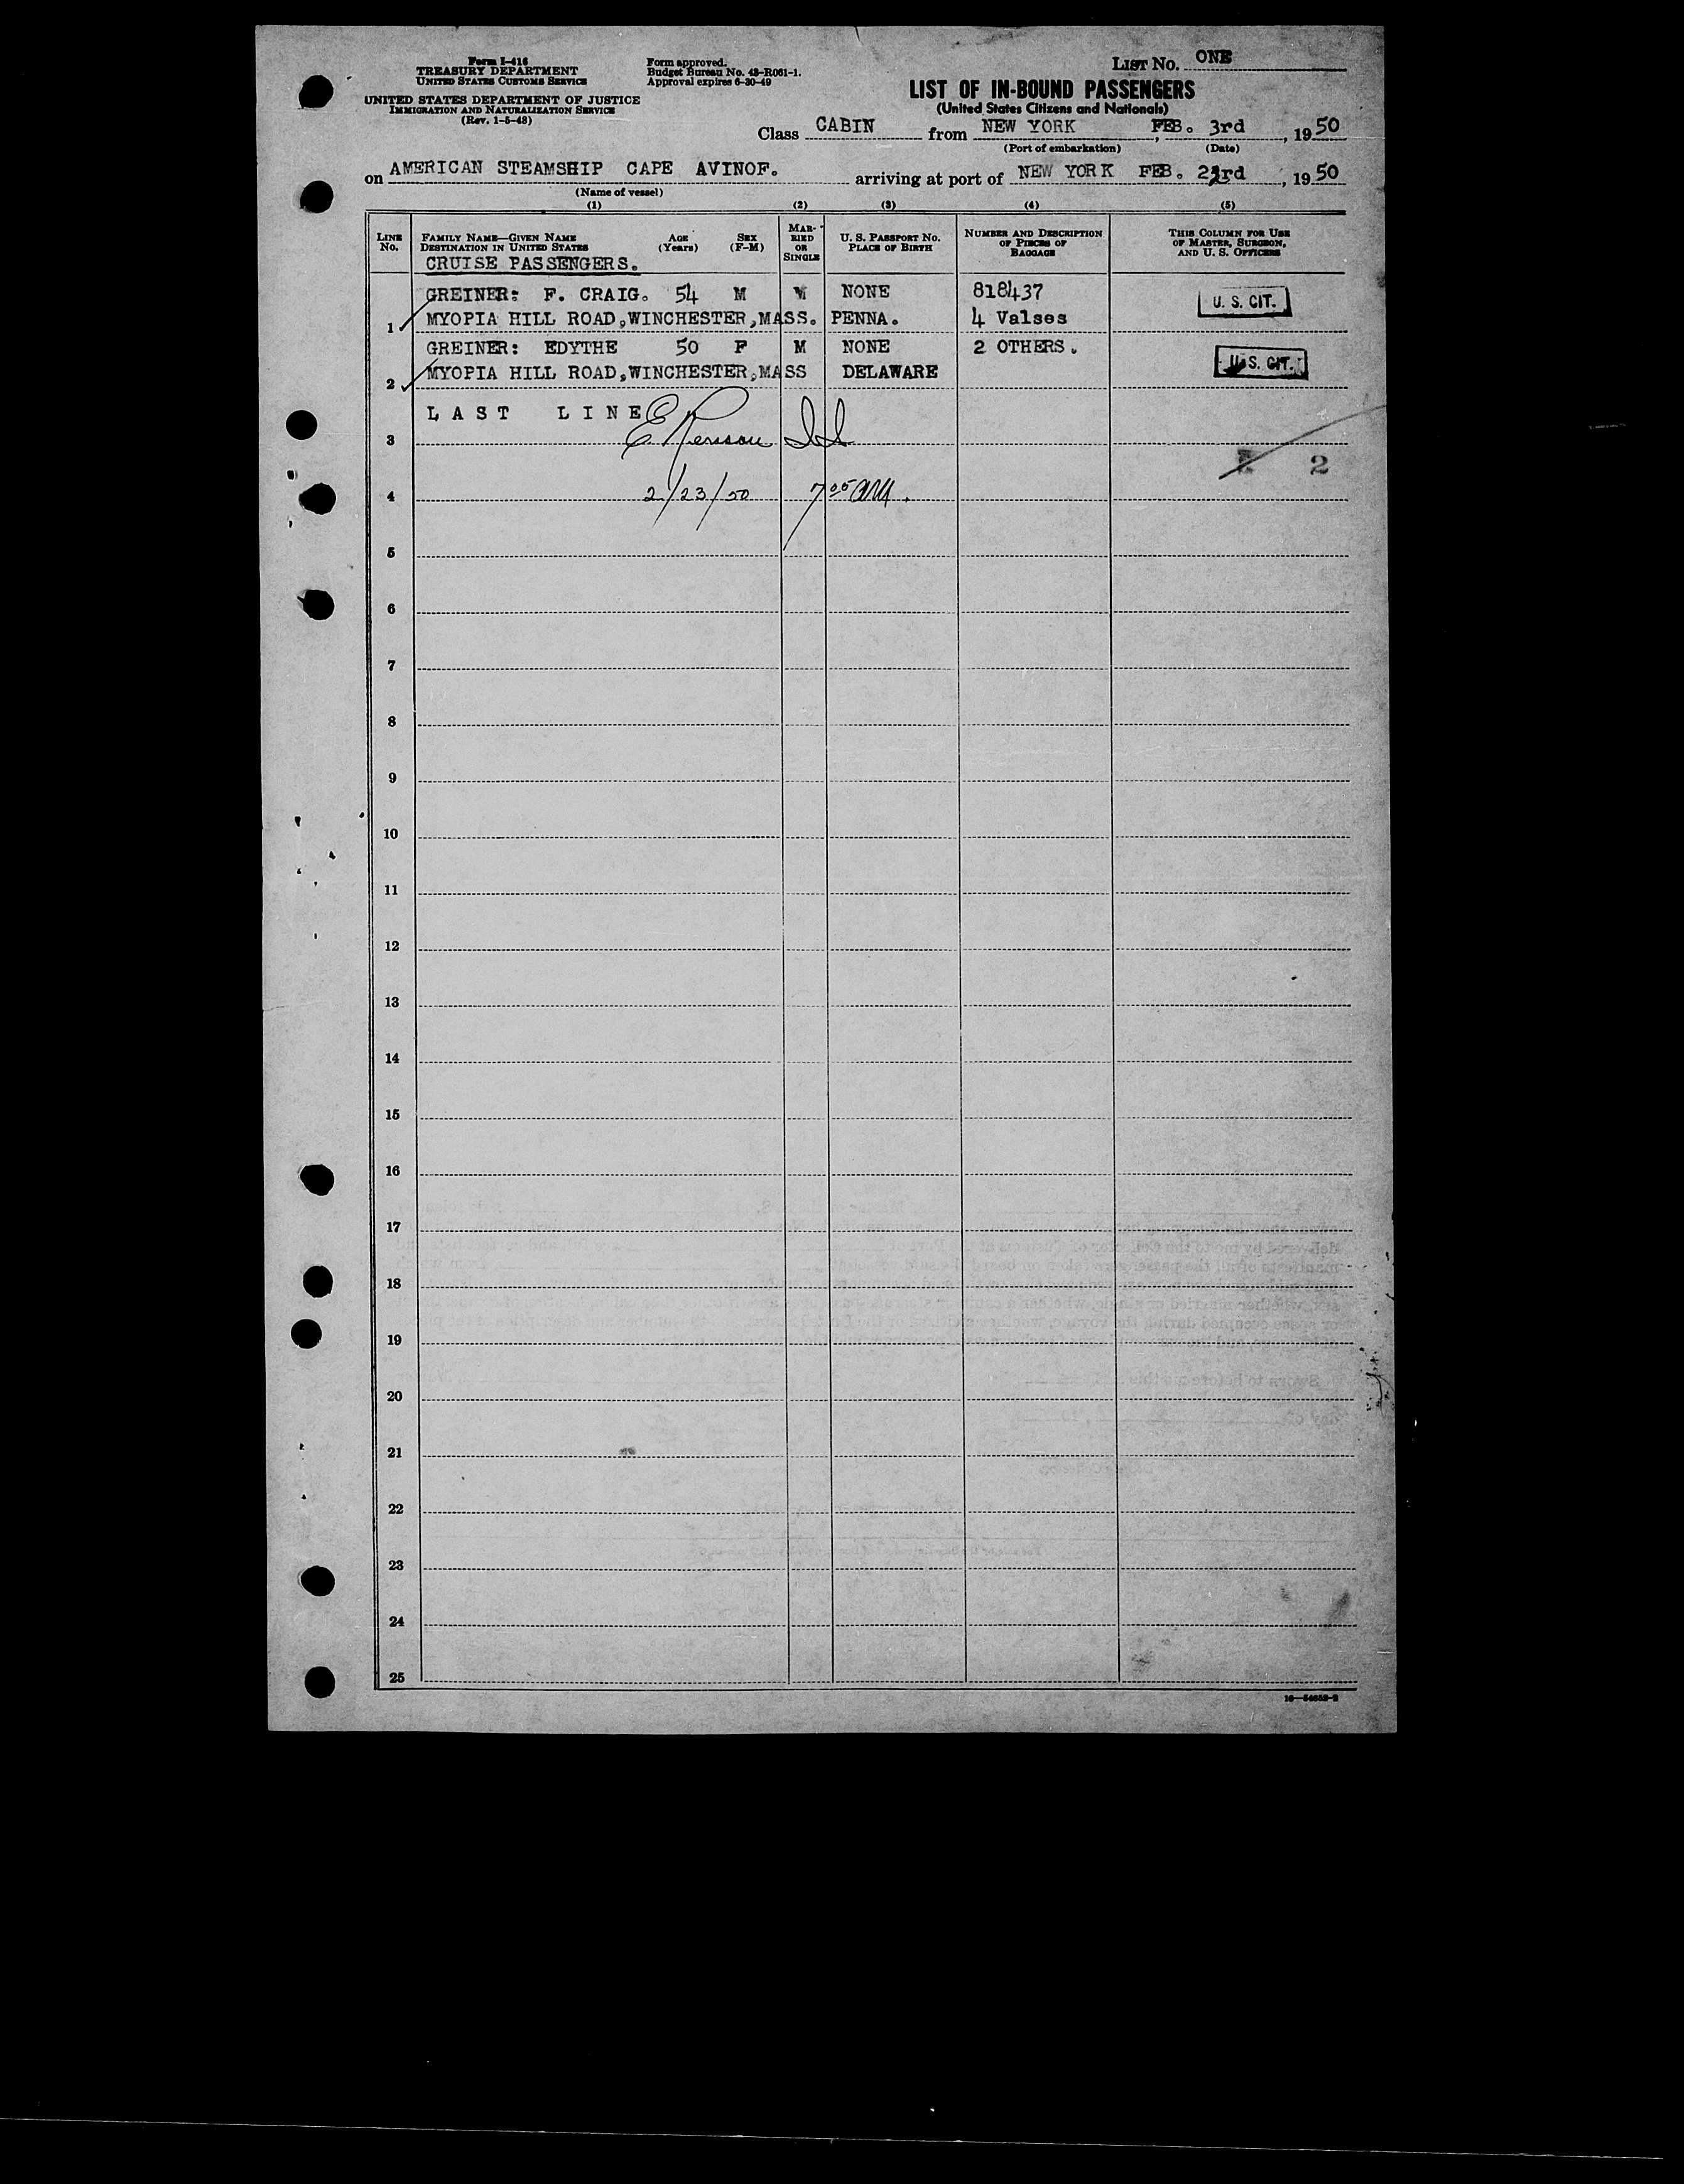 Form I-416
TREASURY DEPARTMENT
UNITED STATES CUSTOMS SERVICE
UNITED STATES DEPARTMENT OF JUSTICE
IMMIGRATION AND NATURALIZATION SERVICE
(Rev. 1-5-48)
Form approved.
Budget Bureau No. 43-R061-1.
Approval expires 6-30-49
LIST No. ONE
LIST OF IN-BOUND PASSENGERS
(United States Citizens and Nationals)
Class CABIN from NEW YORK, FEB. 3rd, 1950
(Port of embarkation) (Date)
on AMERICAN STEAMSHIP CAPE AVINOF. arriving at port of NEW YORK FEB. 23rd, 1950
(Name of vessel)
(1) (2) (3) (4) (5)
LINE No.
FAMILY NAME—GIVEN NAME
DESTINATION IN UNITED STATES
AGE (Years)
SEX (F-M)
MARRIED OR SINGLE
U. S. PASSPORT NO.
PLACE OF BIRTH
NUMBER AND DESCRIPTION OF PIECES OF BAGGAGE
THIS COLUMN FOR USE OF MASTER, SURGEON, AND U. S. OFFICERS
CRUISE PASSENGERS.
GREINER: F. CRAIG. 54 M M NONE 818437 U. S. CIT.
1 MYOPIA HILL ROAD,WINCHESTER,MASS. PENNA. 4 Valses
GREINER: EDYTHE 50 F M NONE 2 OTHERS. U. S. CIT.
2 MYOPIA HILL ROAD,WINCHESTER,MASS DELAWARE
LAST LINE
3
2
4 2/23/50 7 05 AM.
5
6
7
8
9
10
11
12
13
14
15
16
17
18
19
20
21
22
23
24
25